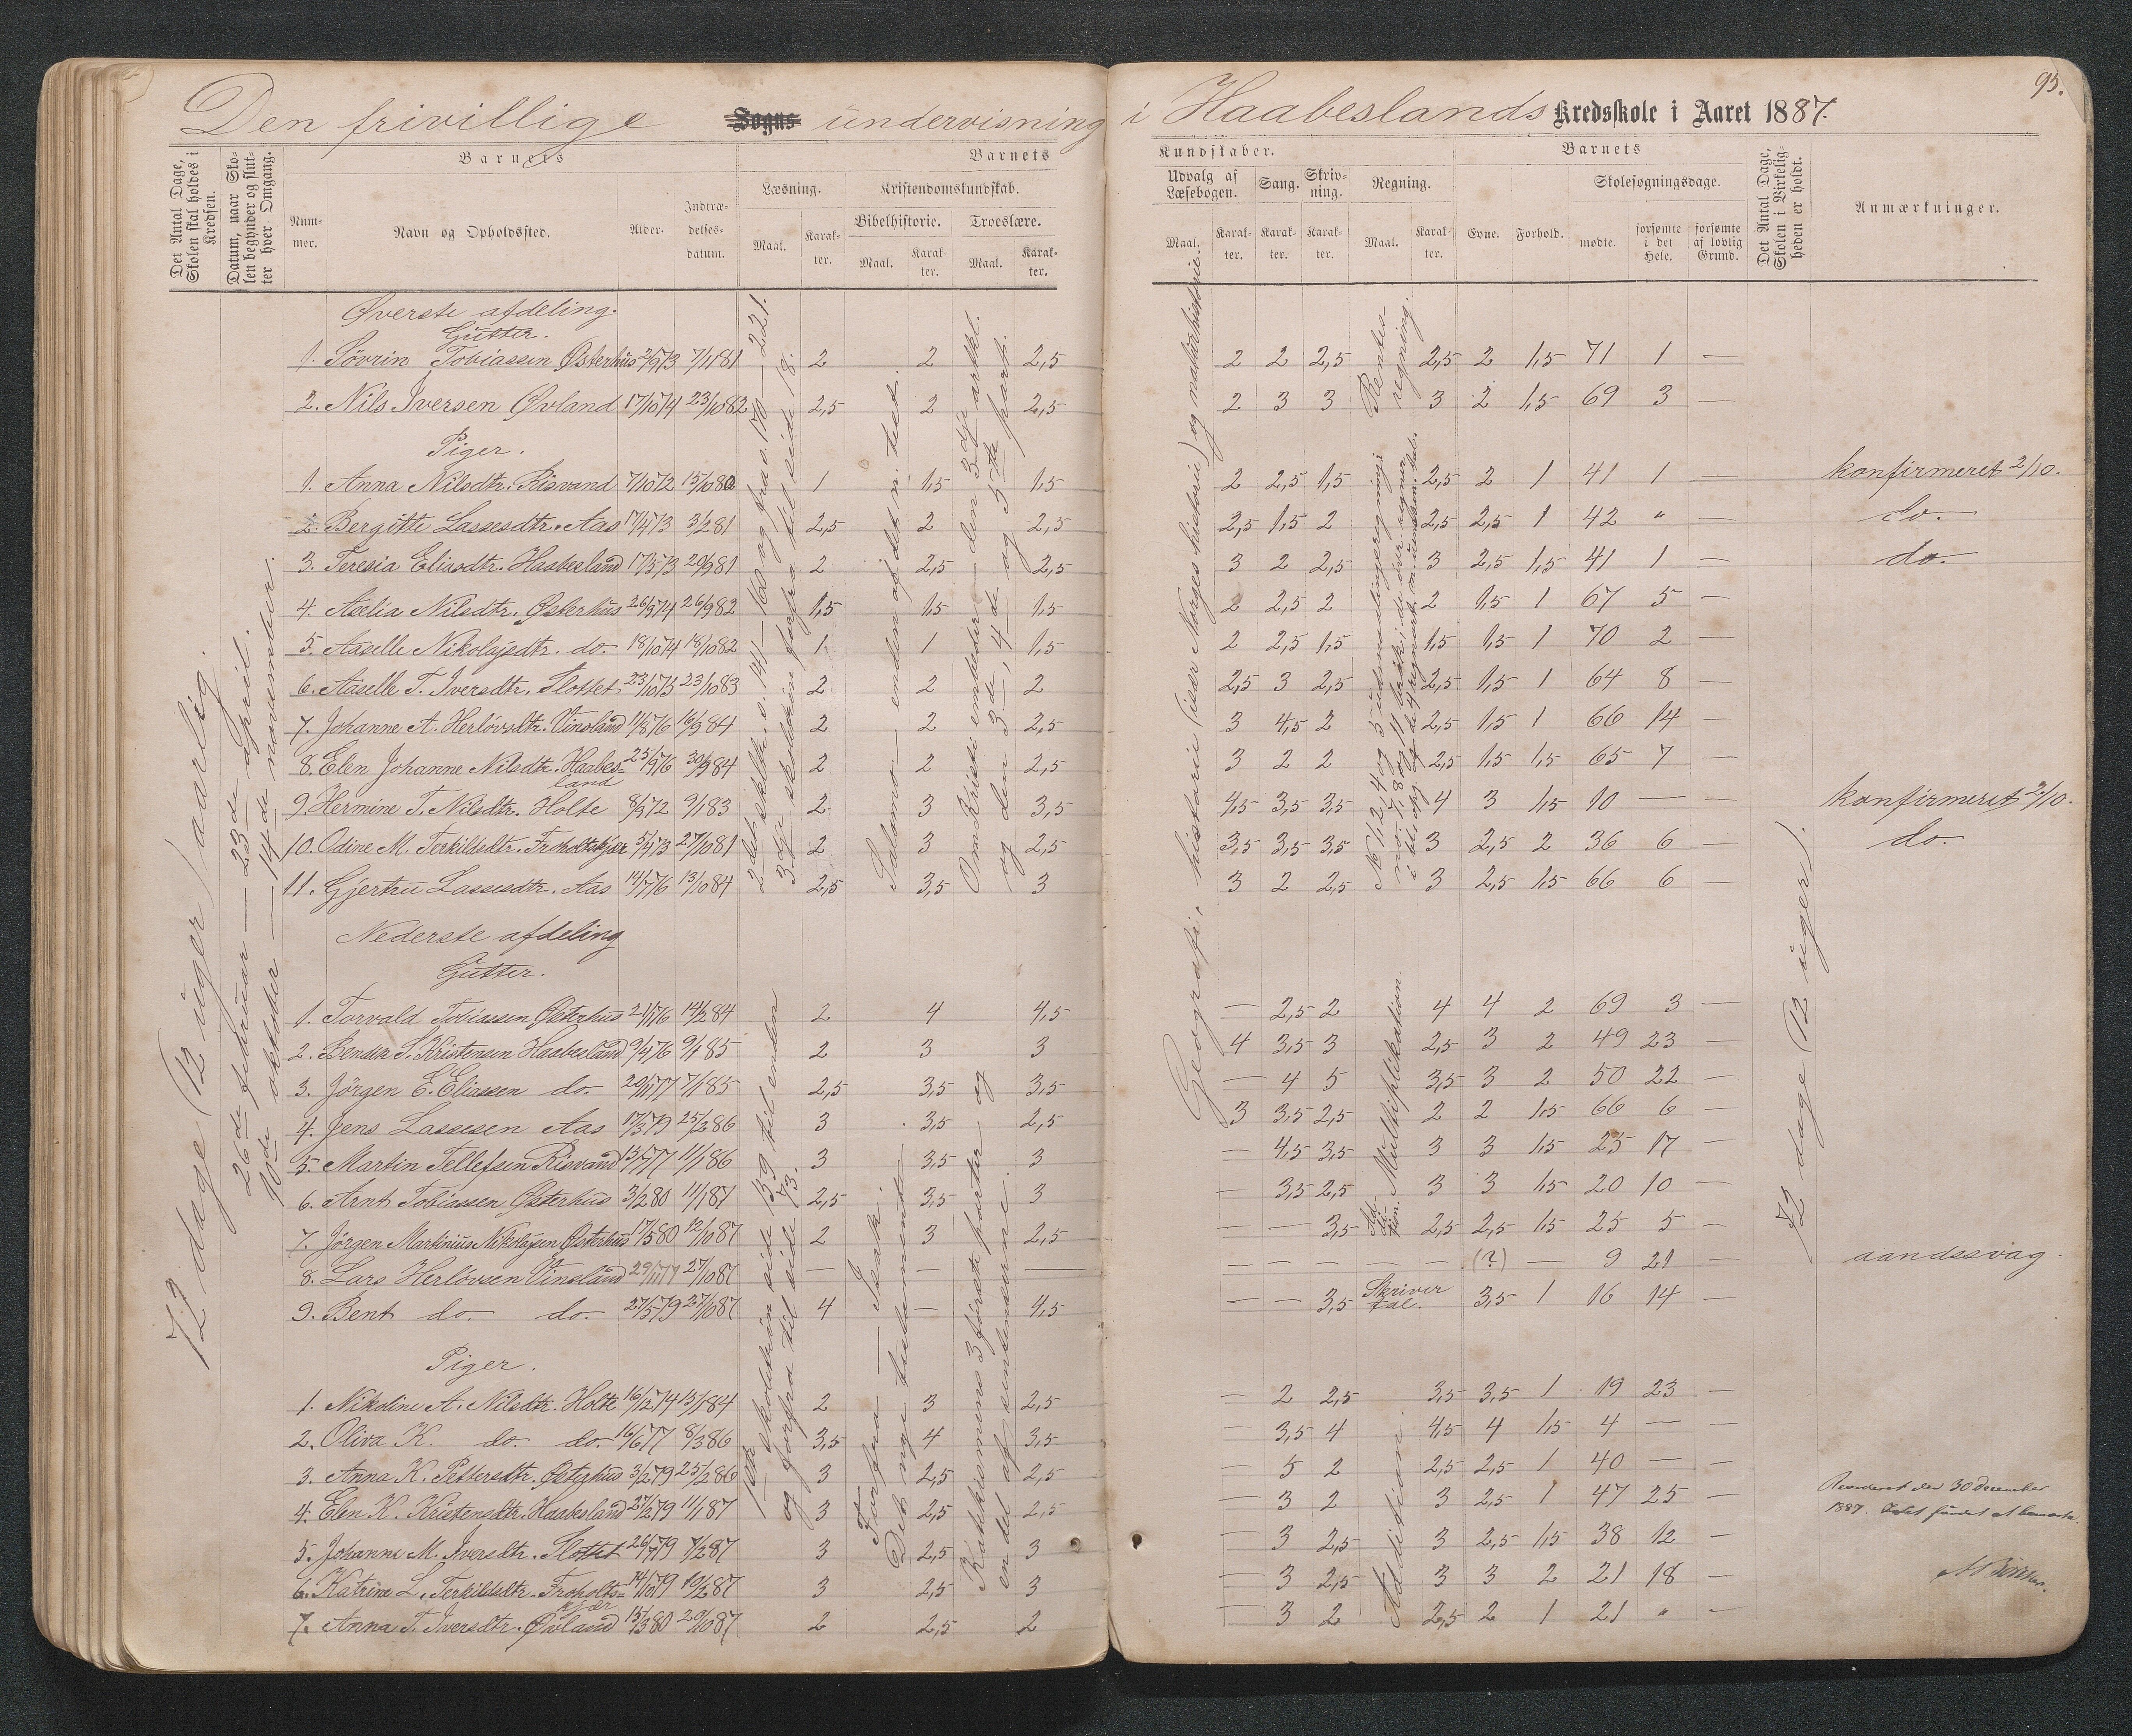 95.
Den frivillige Sogns undervisning i Haabeslands Kredsskole i Aaret 1887.
Det Antal Dage, Skolen skal holdes i Kredsen.
Datum, naar Skolen begynder og slutter hver Omgang.
Barnets
Nummer.
Navn og Opholdssted.
Alder.
Indtrædelsesdatum.
Barnets Kundskaber.
Læsning.
Maal.
Karakter.
Kristendomskundskab.
Bibelhistorie.
Maal.
Karakter.
Troeslære.
Maal.
Karakter.
Udvalg af Læsebogen.
Maal.
Karakter.
Sang.
Karakter.
Skrivning.
Karakter.
Regning.
Maal.
Karakter.
Barnets
Evne.
Forhold.
Skolesøgningsdage.
mødte.
forsømte i det Hele.
forsømte af lovlig Grund.
Det Antal Dage, Skolen i Virkeligheden er holdt.
Anmærkninger.
72 dage (12 uger) aarlig.
26de februar — 23de april.
10de oktober — 14de november.
Øverste afdeling.
Gutter.
1. Sövrin Tobiassen Østerhus 2/9 73 7/1 81 2 2 2,5 2 2 2,5 2,5 2 1,5 71 1 —
2. Nils Iversen Øvland 17/10 74 23/10 82 2,5 2 2,5 2 3 3 3 2 1,5 69 3 —
Piger.
1. Anna Nilsdtr. Risvand 7/10 72 15/10 80 1 1,5 1,5 2 2,5 1,5 2,5 2 1 41 1 — konfirmeret 2/10.
2. Bergitte Lassesdtr. Aas 17/4 73 3/2 81 2,5 2 2,5 2,5 1,5 2 2,5 2,5 1 42 " — do.
3. Teresia Eliasdtr. Haabesland 17/5 73 20/9 81 2 2,5 2,5 3 2 2,5 3 2,5 1,5 41 1 — do.
4. Aselia Nilsdtr. Østerhus 26/9 74 26/9 82 1,5 1,5 1,5 2 2,5 2 2 1,5 1 67 5 —
5. Aaselle Nikolajsdtr. do. 18/10 74 18/10 82 1 1 1,5 2 2,5 1,5 1,5 1,5 1 70 2 —
6. Aaselle T. Iversdtr. Slottet 23/10 75 23/10 83 2 2 2 2,5 3 2,5 2,5 1,5 1 64 8 —
7. Johanne A. Herlövsdtr. Vinsland 11/8 76 16/9 84 2 2 2,5 3 4,5 2 2,5 1,5 1 66 14 —
8. Elen Johanne Nilsdtr. Haabesland 25/9 76 30/9 84 2 2 2,5 3 2 2 2,5 1,5 1,5 65 7 —
9. Hermine T. Nilsdtr. Holte 8/9 72 9/1 83 2 3 3,5 4,5 3,5 3,5 4 3 1,5 10 — — konfirmeret 2/10.
10. Odine M. Terkildsdtr. Froholtskjær 5/4 73 27/10 81 2 3 2,5 3,5 3,5 3,5 3 2,5 2 36 6 — do.
11. Gjertru Lassesdtr. Aas 14/7 76 13/10 84 2,5 3,5 3 3 2 2,5 3 2,5 1,5 66 6 —
2det skolltr. s. 141—160 og fra s. 170—221.
3dje skoletrin forfra til side 18.
Salomo — enden af det n. test.
Om Kristi embeder — den 3dje artkl.
og den 3de, 4de og 5te part.
Geografi, historie (især Norges historie) og naturhistorie.
Rentes regning.
Nederste afdeling
Gutter.
1. Torvald Tobiassen Østerhus 21/1 76 14/2 84 2 4 4,5 — 2,5 2 4 4 2 69 3 —
2. Bendix S. Kristensen Haabesland 9/4 76 9/1 85 2 3 3 4 3,5 3 2,5 3 2 49 23 —
3. Jörgen E. Eliassen do. 20/1 77 7/1 85 2,5 3,5 3,5 — 4 5 3,5 3 2 50 22 —
4. Jens Lassesen Aas 17/3 79 25/2 86 3 3,5 2,5 3 3,5 2,5 2 2 1,5 66 6 —
5. Martin Tellefsen Risvand 15/7 77 11/1 86 3 3,5 3 — 4,5 3,5 3 3 1,5 25 17 —
6. Arnt Tobiassen Østerhus 3/2 80 11/1 87 2,5 3,5 3 — 3,5 2,5 3 3 1,5 20 10 —
7. Jörgen Martinius Nikolajsen Østerhus 17/5 80 12/10 87 2 3 2,5 — — 3,5 2,5 2,5 1,5 25 5 —
8. Lars Herlövsen Vinsland 29/11 77 27/10 87 — — — — — — — — (?) — 9 21 — aandssvag.
9. Bent do. do. 27/5 79 27/10 87 4 — 4,5 — — 3,5 Skriver tal. 3,5 1 16 14 —
Multiplikation
Addition.
72 dage (12 uger).
Piger.
1. Nikoline A. Nilsdtr. Holte 16/2 74 15/1 84 2 3 2,5 — 2 2,5 3,5 3,5 1 19 23 —
2. Oliva K. do. do. 16/6 77 8/3 86 3,5 4 3,5 — 3,5 4 4,5 4 1,5 4 — —
3. Anna K. Pettersdtr. Østerhus 3/2 79 25/2 86 3 2,5 2,5 — 5 2 2,5 2,5 1 40 — —
4. Elen K. Kristensdtr. Haabesland 27/2 79 11/1 87 3 2,5 2,5 — 3 2 3 2,5 1 47 25 —
5. Johanne M. Iversdtr. Slottet 26/7 79 7/2 87 3 2,5 3 — 3 2,5 3 2,5 1,5 38 12 —
6. Katrine L. Terkildsdtr. Froholtskjær 14/10 79 10/2 87 3 2,5 3 — 3 2,5 3 3 2 21 18 —
7. Anna T. Iversdtr. Øvland 15/3 80 20/10 87 2 2,5 2 — 3 2 2,5 2 1 21 " —
1ste skoletrin side 139 til enden
og forfra til side 73.
Forfra — Isak.
Det nye testamente
Katekismens 3 første parter og
en del af sentenserne.
Addition.
Revideret den 30 December
1887. Intet fundet at bemærke.